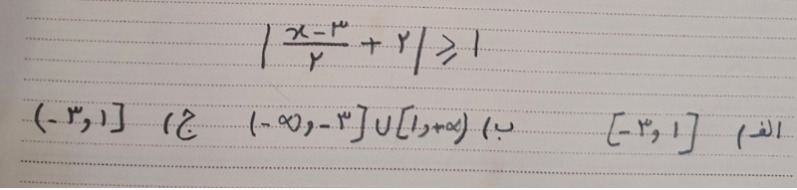 | (x-۳)/۲ + ۲ | ⩾ ۱
الف) [-۳,۱] ب) (-∞,-۳]∪[۱,+∞) ج) (-۳,۱]